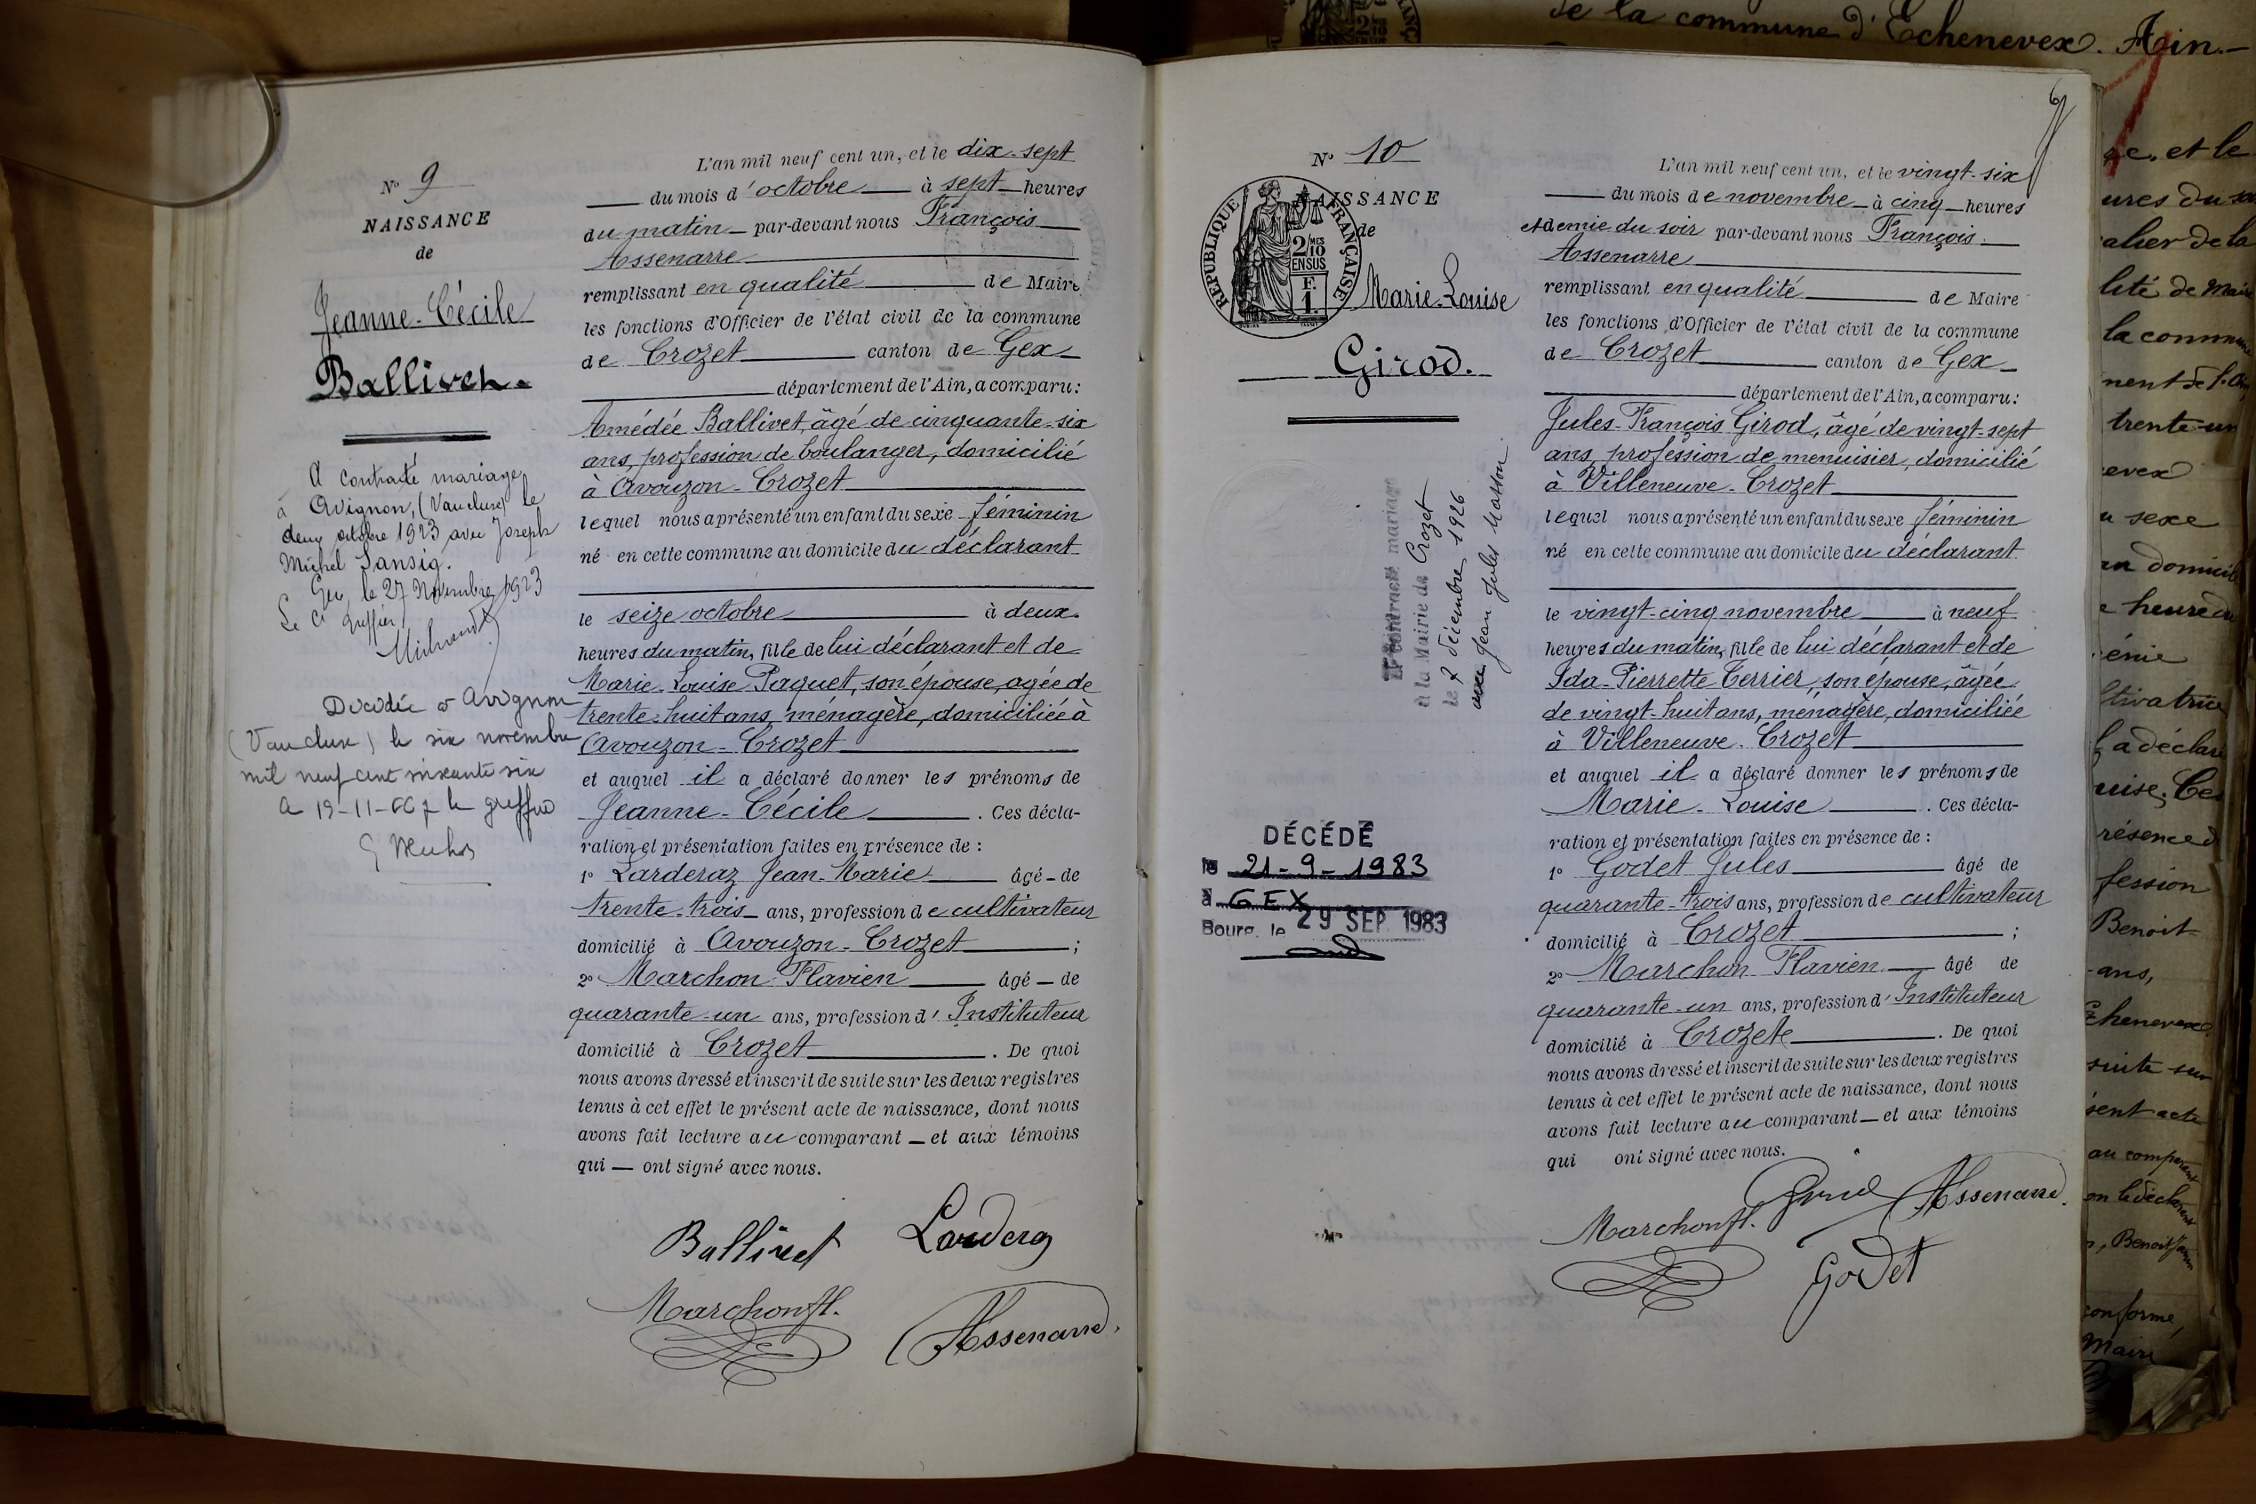 N° 9
NAISSANCE
de
Jeanne-Cécile
Ballivet.
A contracté mariage
à Avignon, (Vaucluse) le
deux octobre 1923 avec Joseph
Michel Sansig.
Gex, le 27 Novembre 1923
Le Cis Greffier,
Décédée à Avignon
(Vaucluse) le six novembre
mil neuf cent soixante six
Le 19-11-66 le greffier
L'an mil neuf cent un, et le dix-sept
du mois d'octobre à sept heures
du matin par-devant nous François
Assenarre
remplissant en qualité de Maire
les fonctions d'Officier de l'état civil de la commune
de Crozet canton de Gex
département de l'Ain, a comparu:
Amédée Ballivet, âgé de cinquante-six
ans, profession de boulanger, domicilié
à Avouzon-Crozet
lequel nous a présenté un enfant du sexe féminin
né en cette commune au domicile du déclarant
le seize octobre à deux
heures du matin, fille de lui déclarant et de
Marie-Louise Paquet, son épouse, agée de
trente-huit ans, ménagère, domiciliée à
Avouzon-Crozet
et auquel il a déclaré donner les prénoms de
Jeanne-Cécile . Ces décla-
ration et présentation faites en présence de :
1° Larderaz Jean-Marie âgé de
trente-trois ans, profession de cultivateur
domicilié à Avouzon-Crozet ;
2° Marchon Flavien âgé de
quarante-un ans, profession d'Instituteur
domicilié à Crozet . De quoi
nous avons dressé et inscrit de suite sur les deux registres
tenus à cet effet le présent acte de naissance, dont nous
avons fait lecture au comparant et aux témoins
qui ont signé avec nous.
Ballivet Larderaz
Marchon fl. Assenarre
N° 10
NAISSANCE
de
RÉPUBLIQUE FRANÇAISE
2 MES
10
EN SUS
F.
1.
Marie-Louise
Girod.
A contracté mariage
à la Mairie de Crozet
le 7 décembre 1926
avec Jean Jules Masson
DÉCÉDÉ
le 21-9-1983
à GEX
Bourg, le 29 SEP. 1983
L'an mil neuf cent un, et le vingt-six
du mois de novembre à cinq heures
et demie du soir par-devant nous François
Assenarre
remplissant en qualité de Maire
les fonctions d'Officier de l'état civil de la commune
de Crozet canton de Gex
département de l'Ain, a comparu:
Jules-François Girod, âgé de vingt-sept
ans, profession de menuisier, domicilié
à Villeneuve-Crozet
lequel nous a présenté un enfant du sexe féminin
né en cette commune au domicile du déclarant
le vingt-cinq novembre à neuf
heures du matin, fille de lui déclarant et de
Ida-Pierrette Terrier, son épouse, âgée
de vingt-huit ans, ménagère, domiciliée
à Villeneuve-Crozet
et auquel il a déclaré donner les prénoms de
Marie-Louise . Ces décla-
ration et présentation faites en présence de :
1° Godet Jules âgé de
quarante-trois ans, profession de cultivateur
domicilié à Crozet ;
2° Marchon Flavien âgé de
quarante-un ans, profession d'Instituteur
domicilié à Crozete . De quoi
nous avons dressé et inscrit de suite sur les deux registres
tenus à cet effet le présent acte de naissance, dont nous
avons fait lecture au comparant et aux témoins
qui ont signé avec nous.
Girod Assenarre
Marchon fl.
Godet
de la commune d'Echenevex. Ain.
et le
ures du
alier de la
lité de Maire
la commune
nent de l'Ain
trente-un
evex
sexe
domicile
heure du
énie
ltivatrice
a déclaré
uise. Ces
résence d
fession
Benoit
ans,
Echenevex
suite sur
sent acte
au comparant
le déclarant
Benoit
conforme,
Maire